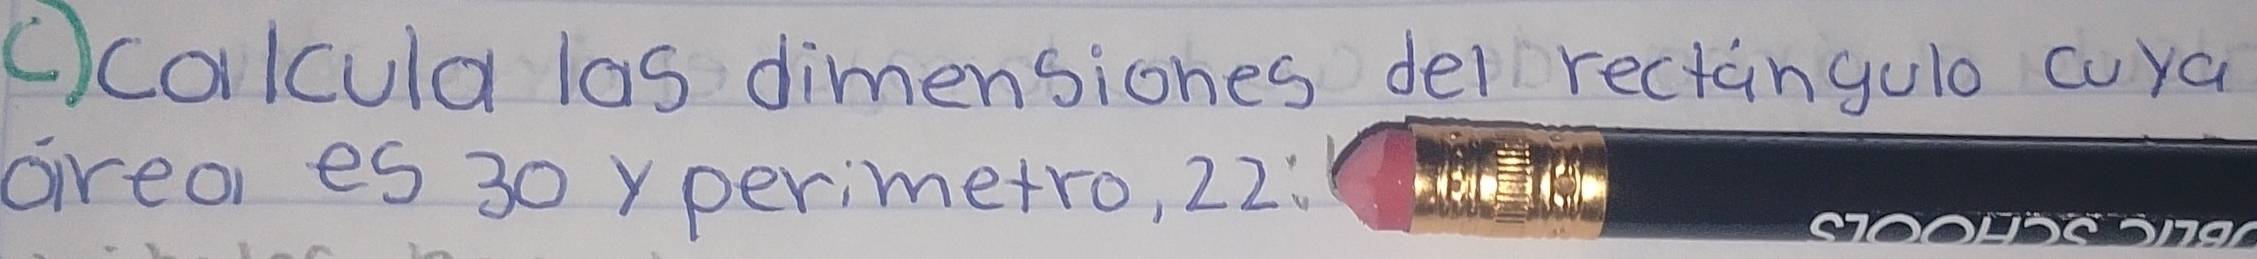 c) calcula las dimensiones del rectángulo cuya
área es 30 y perimetro, 22:
PUBLIC SCHOOLS